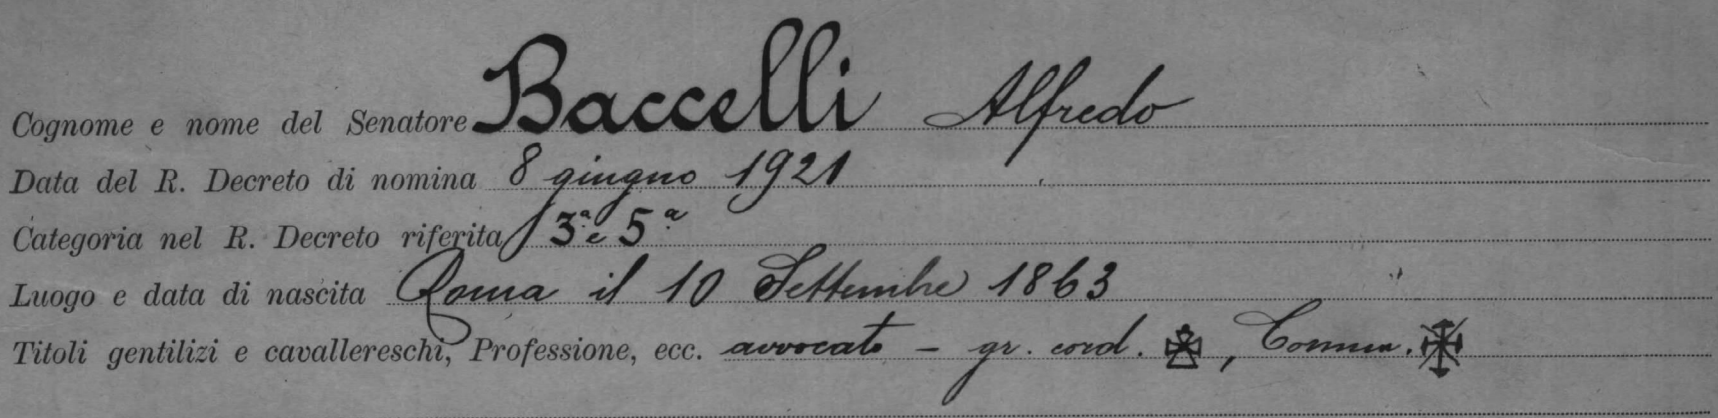 Cognome e nome del Senatore Baccelli Alfredo
Data del R. Decreto di nomina 8 giugno 1921
Categoria nel R. Decreto riferita 3ª e 5ª
Luogo e data di nascita Roma il 10 Settembre 1863
Titoli gentilizi e cavallereschi, Professione, ecc. avvocato - gr. cord. , Comm.